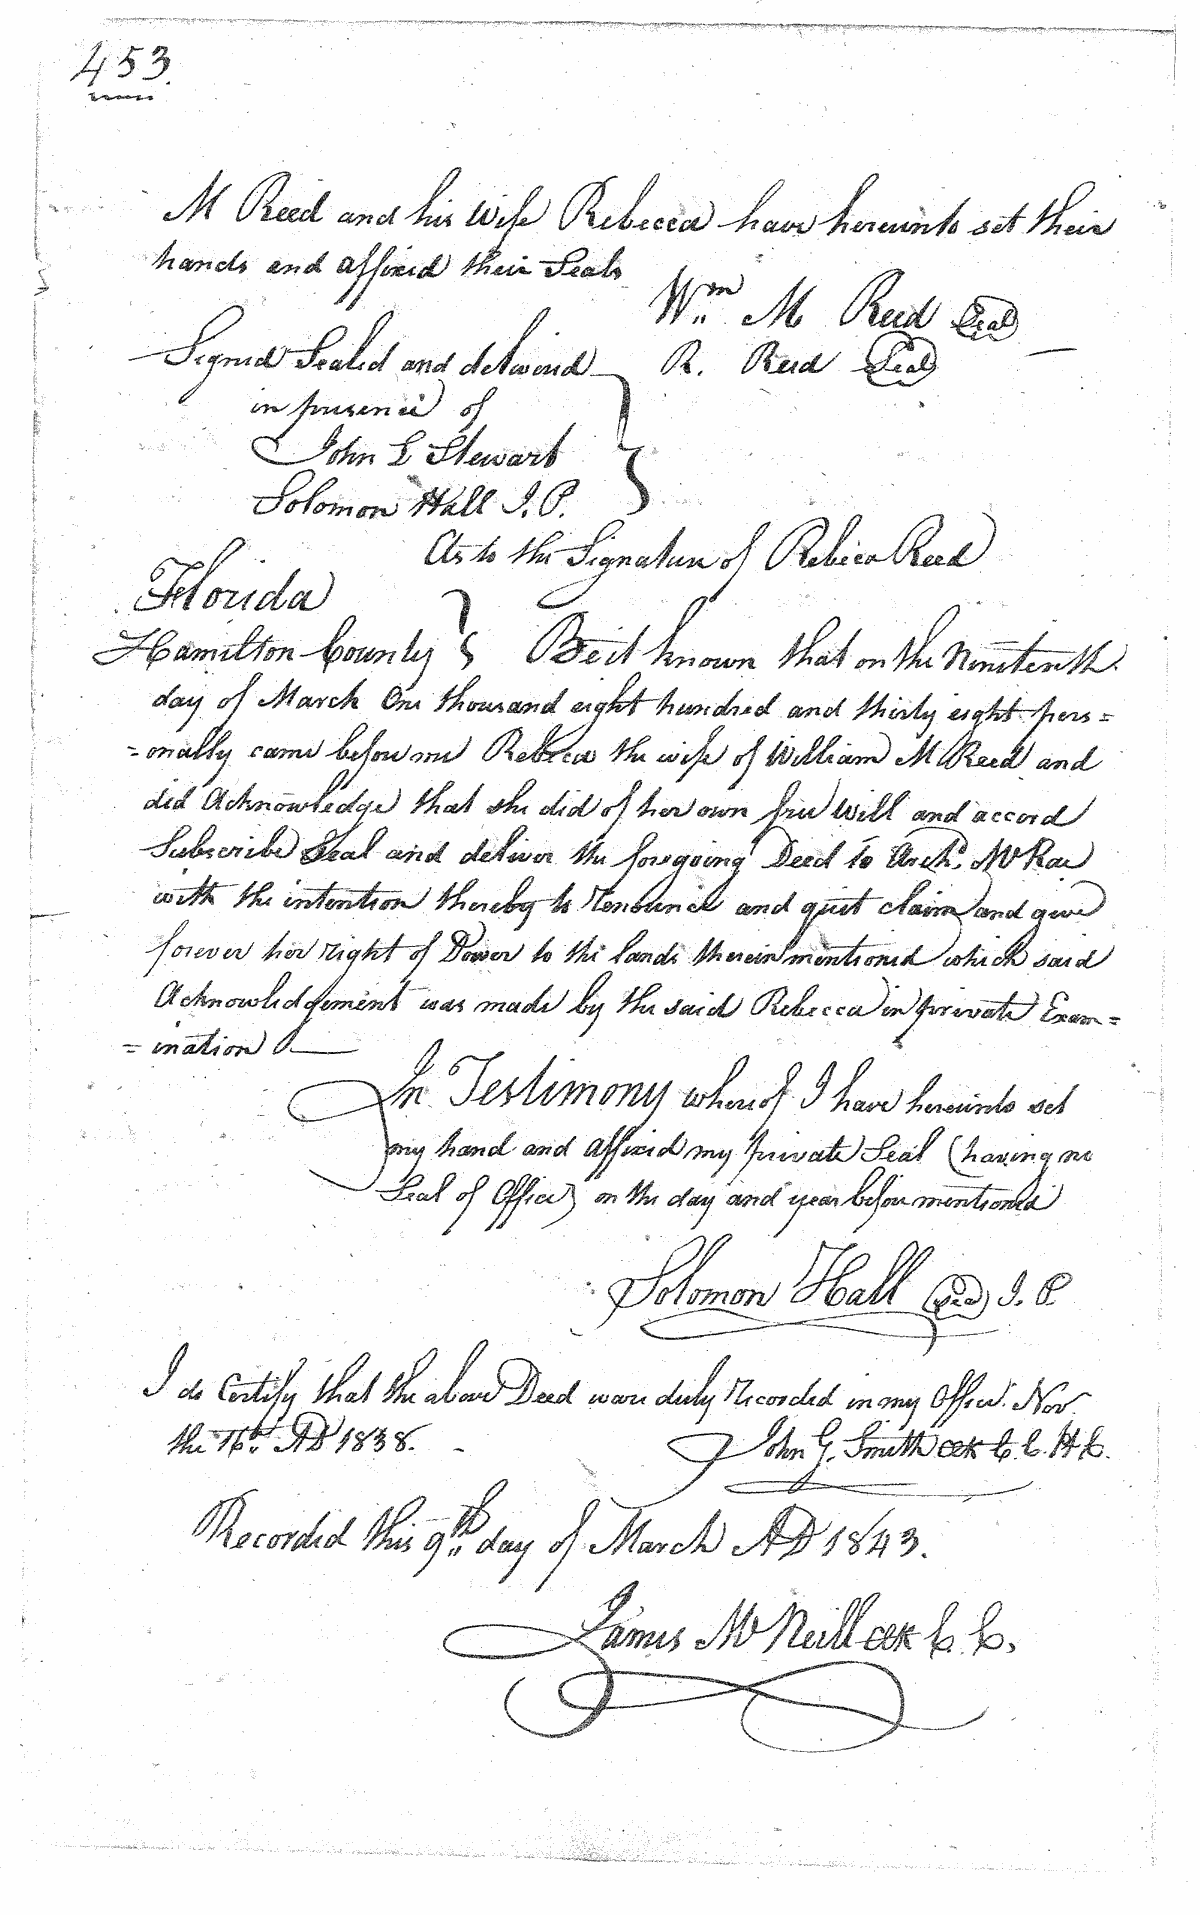 453.
M Reed and his wife Rebecca have hereunto set their
hands and affixed their Seals
Wm M Reed Seal
Signed Sealed and delivered R. Reed Seal
in presence of
John L Stewart
Solomon Hall J. P.
As to the Signature of Rebeca Reed
Florida
Hamilton County } Be it known that on the Ninetenth
day of March One thousand eight hundred and thirty eight pers=
=onally came before me Rebeca the wife of William M Reed and
did Acknowledge that she did of her own free will and accord
Subscribe Seal and deliver the foregoing Deed to Archd. McRae
with the intention thereby to Renounce and quit claim and give
forever her right of Dower to the lands therein mentioned which said
Acknowledgement was made by the said Rebecca in private Exam=
=ination
In Testimony whereof I have hereunto set
my hand and affixed my private Seal (having no
Seal of Office) on the day and year before mentioned
Solomon Hall Seal J. P.
I do Certify that the above Deed ware duly Recorded in my Office Nov.
the 16th. AD 1838.
John G. Smith Clk C. C. H C.
Recorded this 9th day of March AD 1843.
James McNeill Clk C. C.